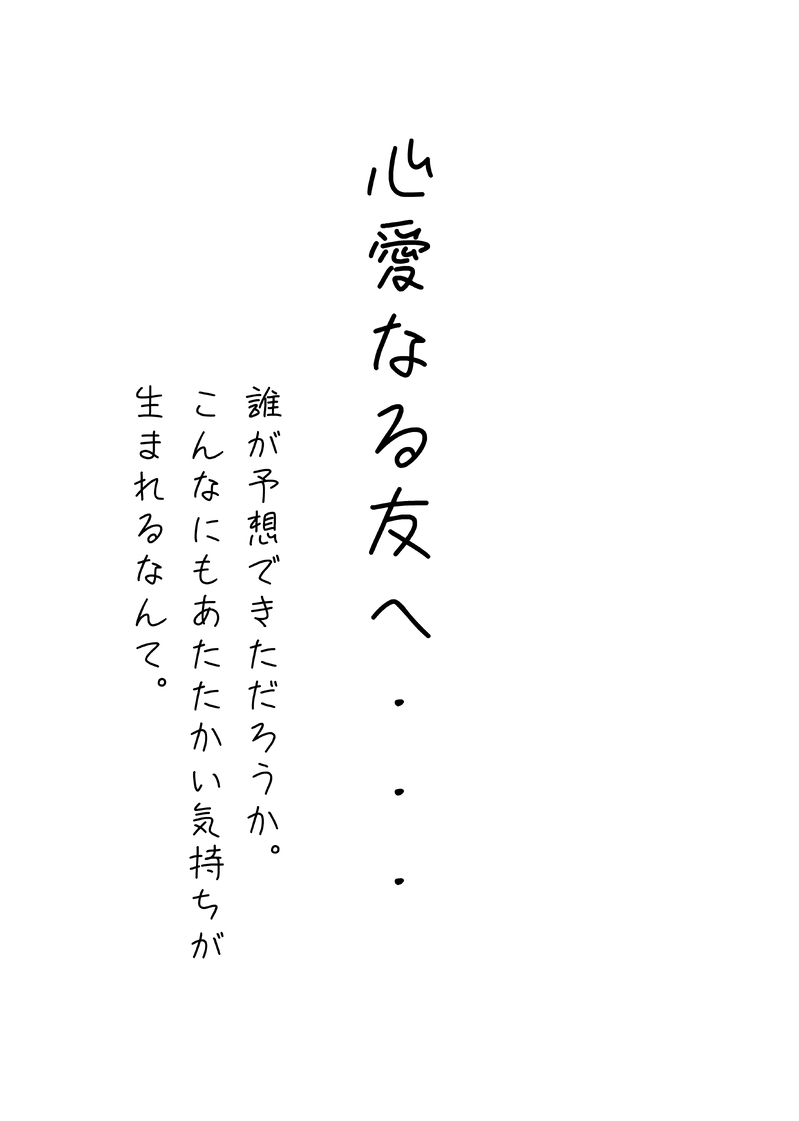 心愛なる友へ・・・
誰が予想できただろうか。
こんなにもあたたかい気持ちが
生まれるなんて。